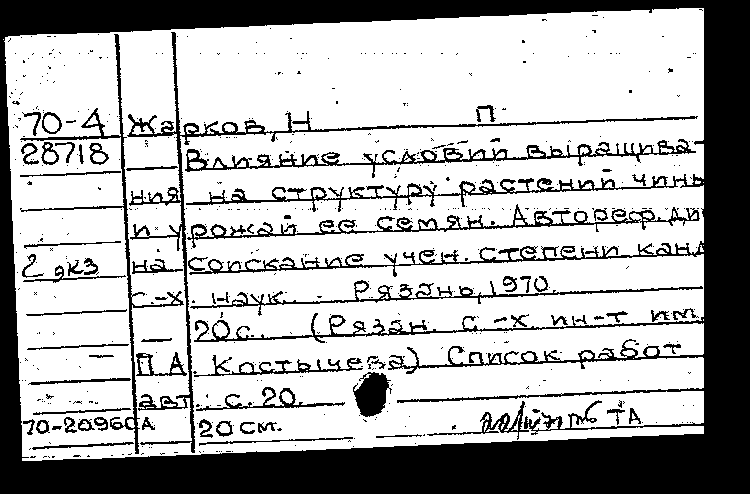 70-4 Жарков, Н П
28718 Влияние условий выращива-
ния на структуру растений чины
и урожай ее семян. Автореф. ди
2 экз на соискание учен. степени канд
с.-х. наук. Рязань, 1970.
20 с. (Рязан. с.-х ин-т им.
П.А. Костычева) Список работ
авт. с. 20.
70-20960А 20 см. ТА